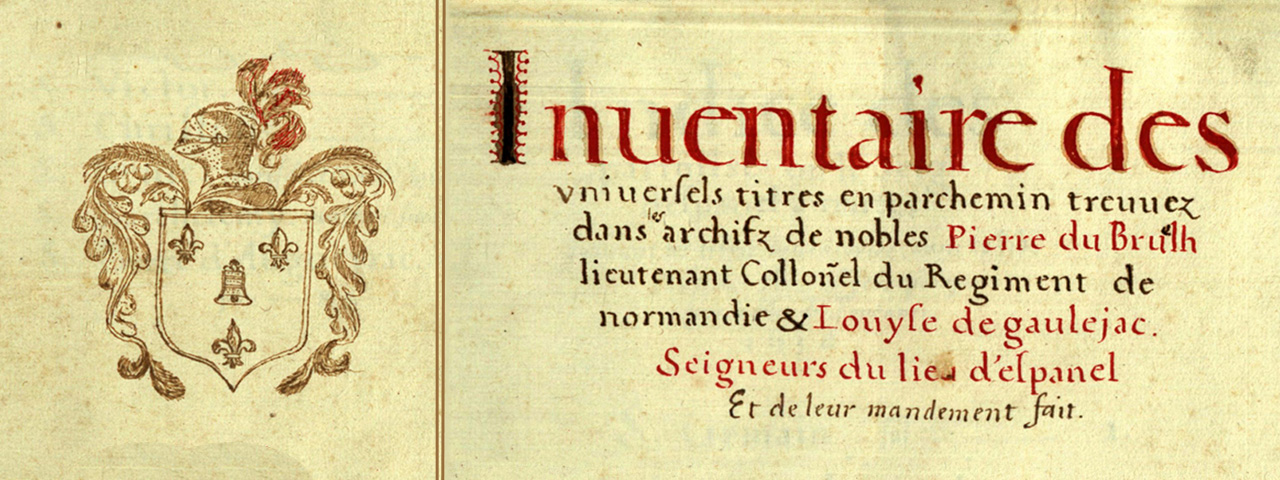 Inuentaire des
vniuerſels titres en parchemin treuuez
dans les archifz de nobles Pierre du Brulh
lieutenant Colloñel du Regiment de
normandie & Louyſe de gaulejac.
Seigneurs du lieu d'eſpanel
Et de leur mandement fait.